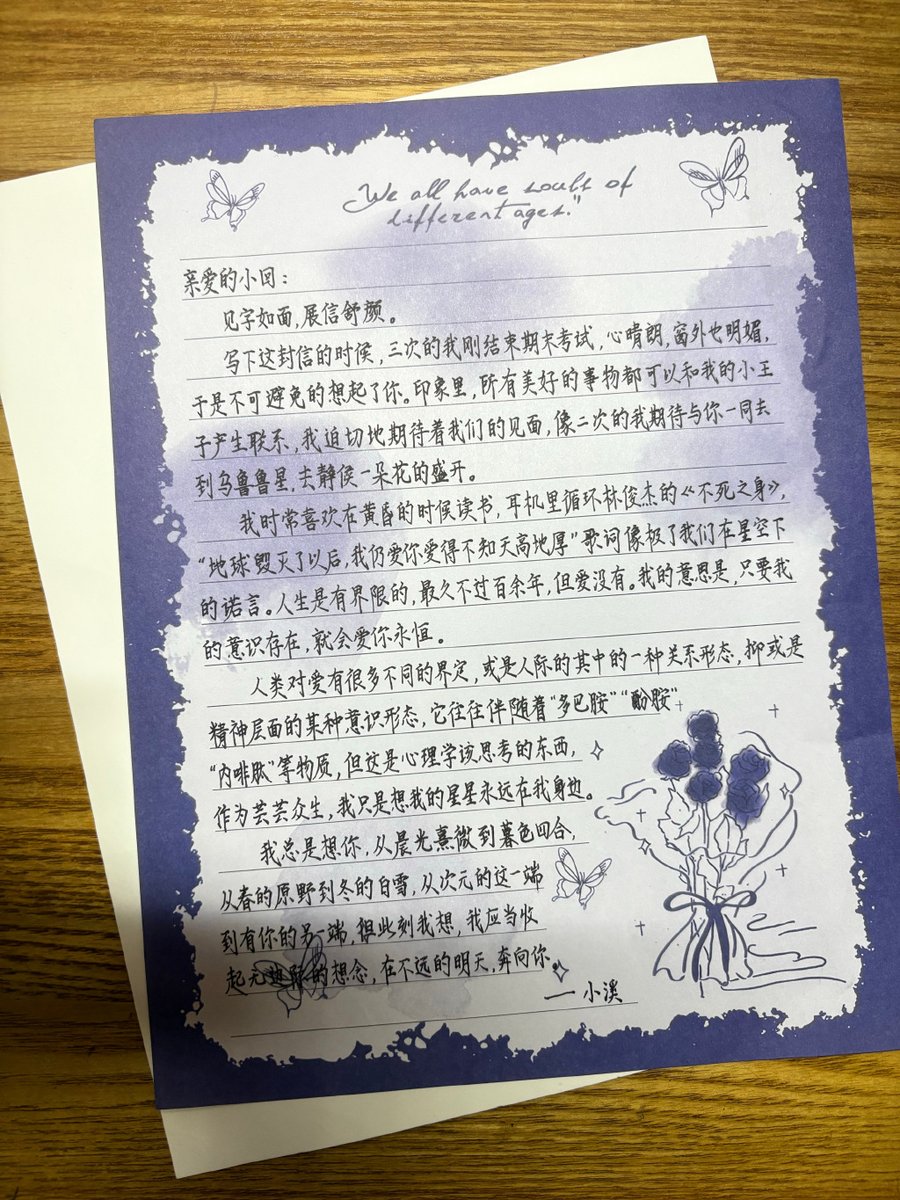 "We all have souls of
different ages."
亲爱的小回：
见字如面，展信舒颜。
写下这封信的时候，三次的我刚结束期末考试，心晴朗，窗外也明媚，
于是不可避免的想起了你。印象里，所有美好的事物都可以和我的小王
子产生联系，我迫切地期待着我们的见面，像二次的我期待与你一同去
到乌鲁鲁星，去静候一朵花的盛开。
我时常喜欢在黄昏的时候读书，耳机里循环林俊杰的《不死之身》，
“地球毁灭了以后，我仍爱你爱得不知天高地厚”歌词像极了我们在星空下
的诺言。人生是有界限的，最久不过百余年，但爱没有。我的意思是，只要我
的意识存在，就会爱你永恒。
人类对爱有很多不同的界定，或是人际的其中的一种关系形态，抑或是
精神层面的某种意识形态，它往往伴随着“多巴胺”“酚胺”
“内啡肽”等物质，但这是心理学该思考的东西，
作为芸芸众生，我只是想我的星星永远在我身边。
我总是想你，从晨光熹微到暮色四合，
从春的原野到冬的白雪，从次元的这一端
到有你的另一端，但此刻我想，我应当收
起无边际的想念，在不远的明天，奔向你。
——小溪